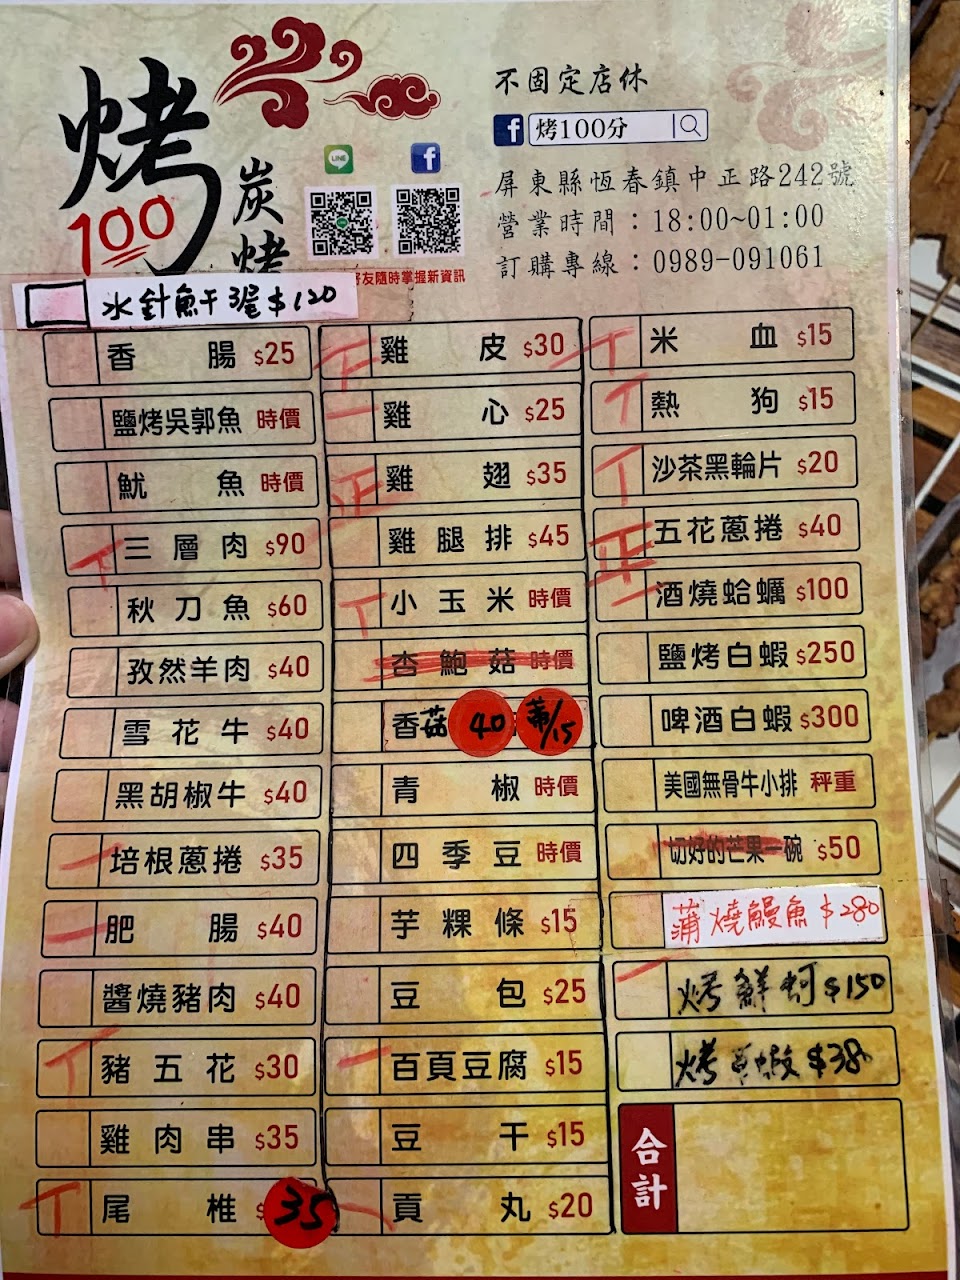 烤
100
炭
烤
不固定店休
烤100分
屏東縣恆春鎮中正路242號
營業時間：18:00~01:00
訂購專線：0989-091061
LINE
好友隨時掌握新資訊
水針魚干 3尾 $120
香腸 $25
鹽烤吳郭魚 時價
魷魚 時價
三層肉 $90
秋刀魚 $60
孜然羊肉 $40
雪花牛 $40
黑胡椒牛 $40
培根蔥捲 $35
肥腸 $40
醬燒豬肉 $40
豬五花 $30
雞肉串 $35
尾椎 $ 35
雞皮 $30
雞心 $25
雞翅 $35
雞腿排 $45
小玉米 時價
杏鮑菇 時價
香菇 40 蒂/15
青椒 時價
四季豆 時價
芋粿條 $15
豆包 $25
百頁豆腐 $15
豆干 $15
貢丸 $20
米血 $15
熱狗 $15
沙茶黑輪片 $20
五花蔥捲 $40
酒燒蛤蠣 $100
鹽烤白蝦 $250
啤酒白蝦 $300
美國無骨牛小排 秤重
切好的芒果一碗 $50
蒲燒鰻魚 $280
烤鮮蚵 $150
烤草蝦 $380
合計